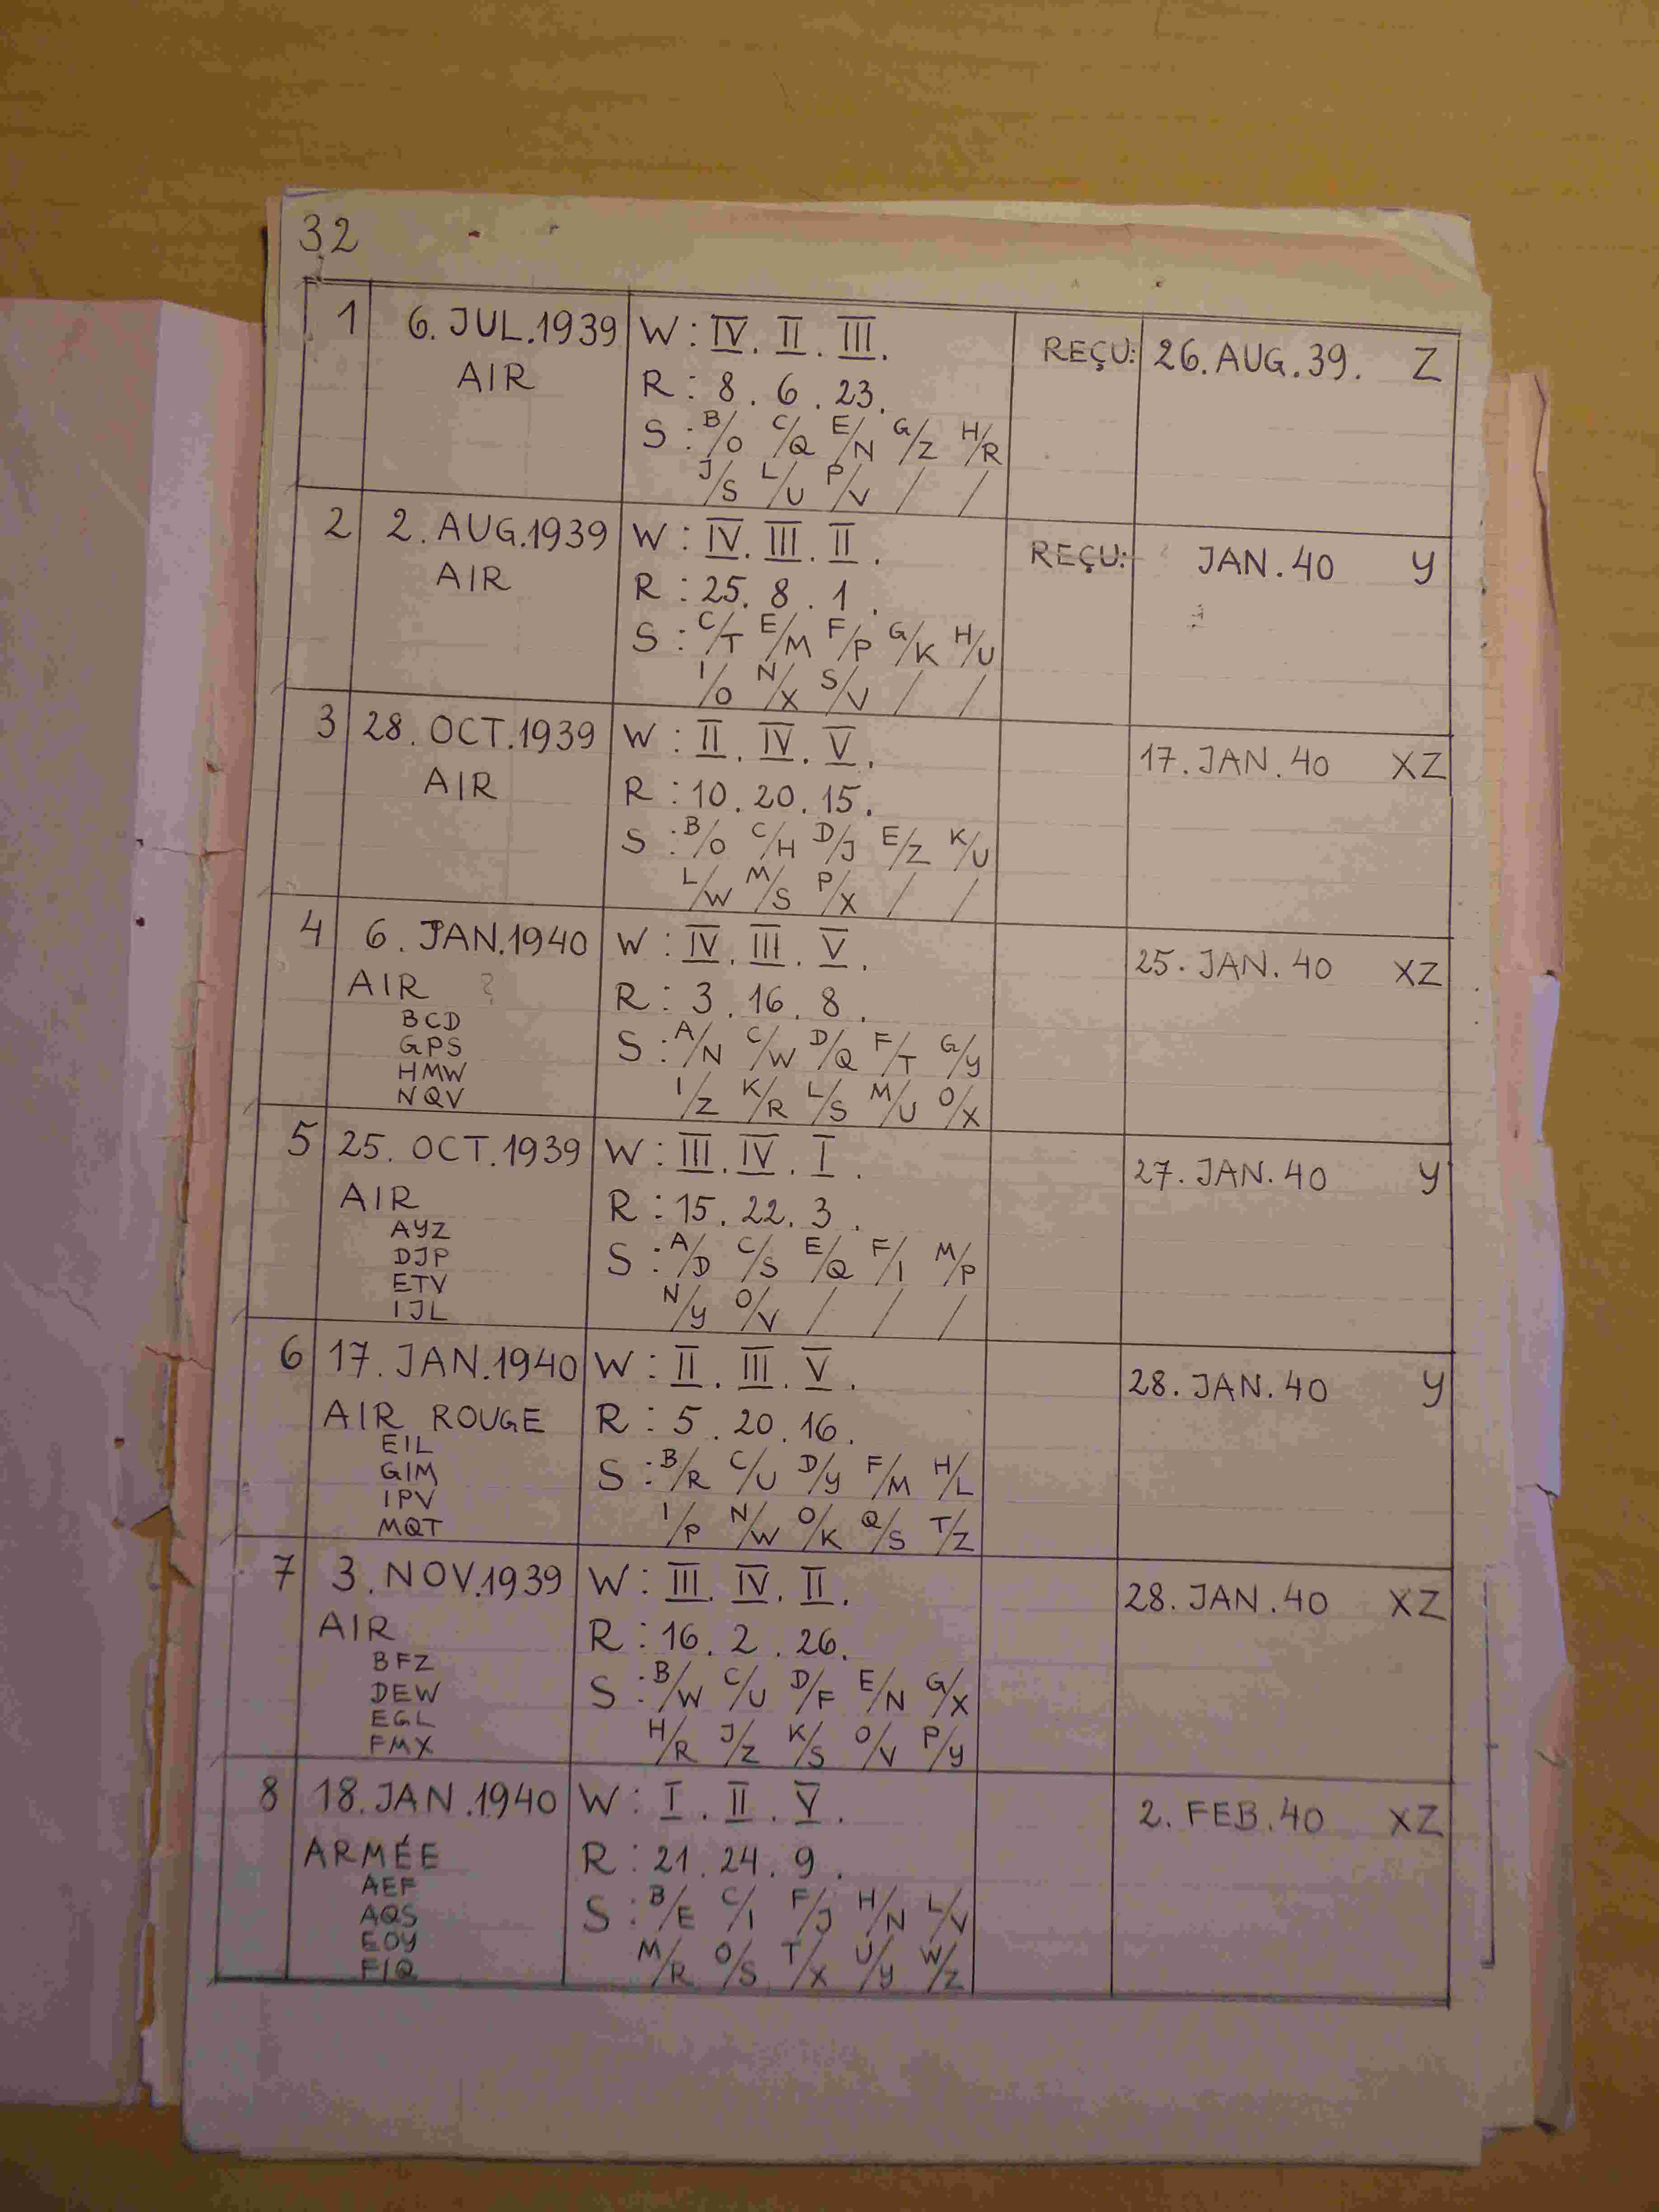 32
1 6. JUL. 1939 W : IV. II. III. REÇU: 26. AUG. 39. Z
AIR R : 8. 6. 23.
S : B/O C/Q E/N G/Z H/R
J/S L/U P/V / /
2 2. AUG. 1939 W : IV. III. II. REÇU: JAN. 40 Y
AIR R : 25. 8. 1.
S : C/T E/M F/P G/K H/U
I/O N/X S/V / /
3 28. OCT. 1939 W : II. IV. V. 17. JAN. 40 XZ
AIR R : 10. 20. 15.
S : B/O C/H D/J E/Z K/U
L/W M/S P/X / /
4 6. JAN. 1940 W : IV. III. V. 25. JAN. 40 XZ
AIR ? R : 3. 16. 8.
BCD
GPS S : A/N C/W D/Q F/T G/Y
HMW
NQV I/Z K/R L/S M/U O/X
5 25. OCT. 1939 W : III. IV. I. 27. JAN. 40 Y
AIR R : 15. 22. 3.
AYZ
DJP S : A/D C/S E/Q F/I M/P
ETV
IJL N/Y O/V / / /
6 17. JAN. 1940 W : II. III. V. 28. JAN. 40 Y
AIR ROUGE R : 5. 20. 16.
EIL
GIM S : B/R C/U D/Y F/M H/L
IPV
MQT I/P N/W O/K Q/S T/Z
7 3. NOV. 1939 W : III. IV. II. 28. JAN. 40 XZ
AIR R : 16. 2. 26.
BFZ
DEW S : B/W C/U D/F E/N G/X
EGL
FMX H/R J/Z K/S O/V P/Y
8 18. JAN. 1940 W : I. II. V. 2. FEB. 40 XZ
ARMÉE R : 21. 24. 9.
AEF
AQS S : B/E C/I F/J H/N L/V
EOY
FIQ M/R O/S T/X U/Y W/Z